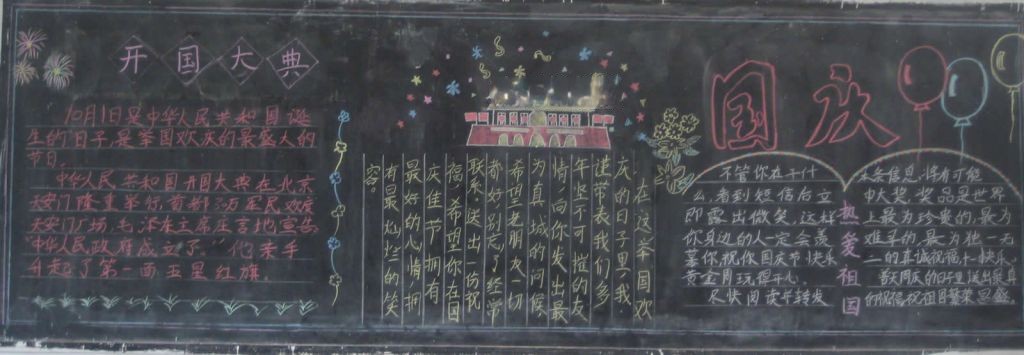 开国大典
10月1日是中华人民共和国诞
生的日子,是举国欢庆的最盛大的
节日。
中华人民共和国开国大典在北京
天安门隆重举行,首都30万军民欢庆
天安门广场,毛泽东主席庄言地宣告
“中华人民政府成立了。”他亲手
升起了第一面五星红旗。
在这举国欢
庆的日子里,我
谨带表我们多
年坚不可摧的友
情,向你发出最
为真诚的问候
希望老朋友一切
都好,别忘了经常
联系,送出一份祝
福,希望你在国
庆佳节拥有
最好的心情,拥
有最灿烂的笑
容。
国庆
不管你在干什
么,看到短信后立
即露出微笑,这样
你身边的人一定会羡
慕你,祝你国庆节快乐
黄金周玩得开心。
尽快阅读并转发
热爱祖国
此信息,将有可能
中大奖,奖品是世界
上最为珍贵的,最为
难寻的,最为独一无
二的真诚祝福——快乐。